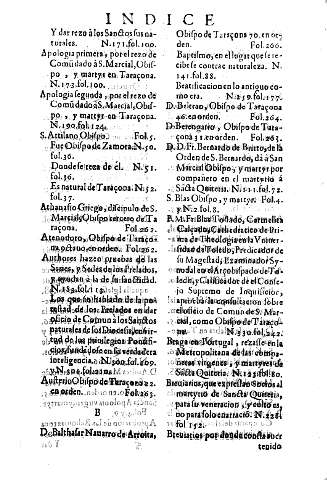 INDICE
Y dar rezo à los Sanctos sus na-
turales. N.171.fol.100.
Apologia primera, por el rezo de
Comũ dado à S. Marcial, Obis-
po, y martyr en Taraçona.
N.173.fol.100.
Apologia segunda, por el rezo de
Comũ dado à S. Marcial, Obis-
po, y martyr en Taraçona.
N.190.fol.124.
S. Attilano Obispo. Fol.5.
Fue Obispo de Zamora. N.50.
fol.36.
Donde se reza de èl. N.51.
fol.36.
Es natural de Taraçona. N.52.
fol.37.
Athanasio Griego, discipulo de S.
Marcial, Obispo tercero de Ta-
raçona. Fol.262.
Atenodoro, Obispo de Taraço-
na octavo en orden. Fol.262.
Authores hazen pruebas de las
Senes, y Sedes de los Prelados,
y ayudan à la de su sanctidad.
Los que han hablado de la po-
testad de los Prelados en dar
oficio de Comun à los Sanctos
naturales de sus Diocesis
de los privilegios Pontifi-
cios, fundados en su verdadera
inteligencia. N.500.fol.209.
y N.504.fol.211.
Austerio Obispo de Taraçona 22.
en orden. Fol.263.
B
D. Balthasar Navarro de Arroita,
Obispo de Taraçona 70. en or-
den. Fol.266.
Baptismo, en el lugar que se re-
cibe se contrae naturaleza. N.
141.fol.88.
Beatificacion lo antiguo co-
mo era. N.259.fol.177.
D. Beltran, Obispo de Taraçona
46. en orden. Fol.264.
D. Berengario, Obispo de Tara-
çona 31. en orden. Fol.263.
D. D. Fr. Bernardo de Britto, de la
Orden de S. Bernardo, dà à San
Marcial Obispo, y martyr por
compañero en el martyrio à
Sãcta Quiteria. N.111.fol.72.
S. Blas Obispo, y martyr. Fol.4.
y N.2.fol.8.
P. M. Fr. Blas Tostado, Carmelita
Calçado, Cathedratico de Pri-
ma de Theologia en la Vniver-
sidad de Toledo, Predicador de
su Magestad, Examinador Sy-
nodal en el Arçobispado de To-
ledo, y Calificador del Conse-
jo Supremo de Inquisicion,
aprobò la consultacion sobre
el oficio de Comun de S. Mar-
cial, como Obispo de Taraço-
na. N.330.fol.242.
Braga en Portugal, rezasse en la
Metropolitana de las compa-
ñeras virgenes, y martyres de
Sãcta Quiteria. N.125.fol.80.
Breviarios, que expressan solo al
martyrio de Sancta Quiteria,
para su veneracion, y culto es,
no para solo narratiò. N.228.
fol.152.
Breviarios por donde consta aver
tenido